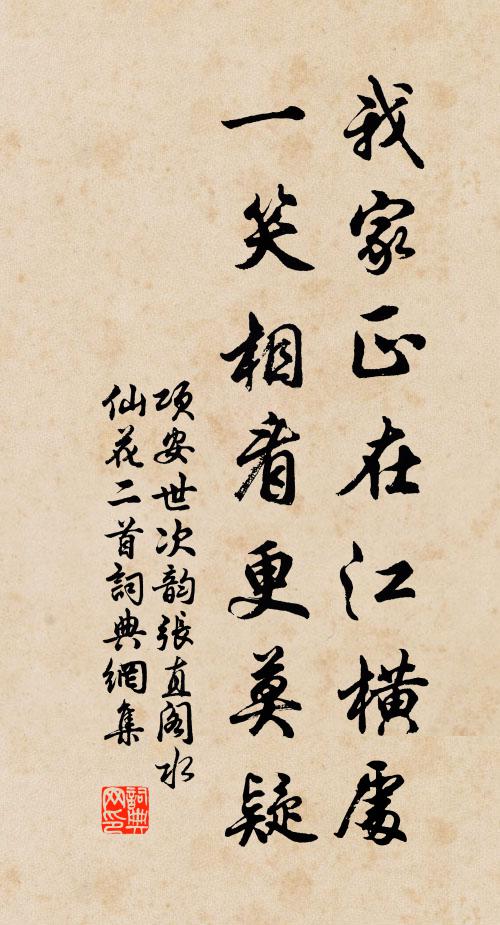 我家正在江橫處
一笑相看更莫疑
項安世次韵張直閣水
仙花二首詞典網集
詞典網印